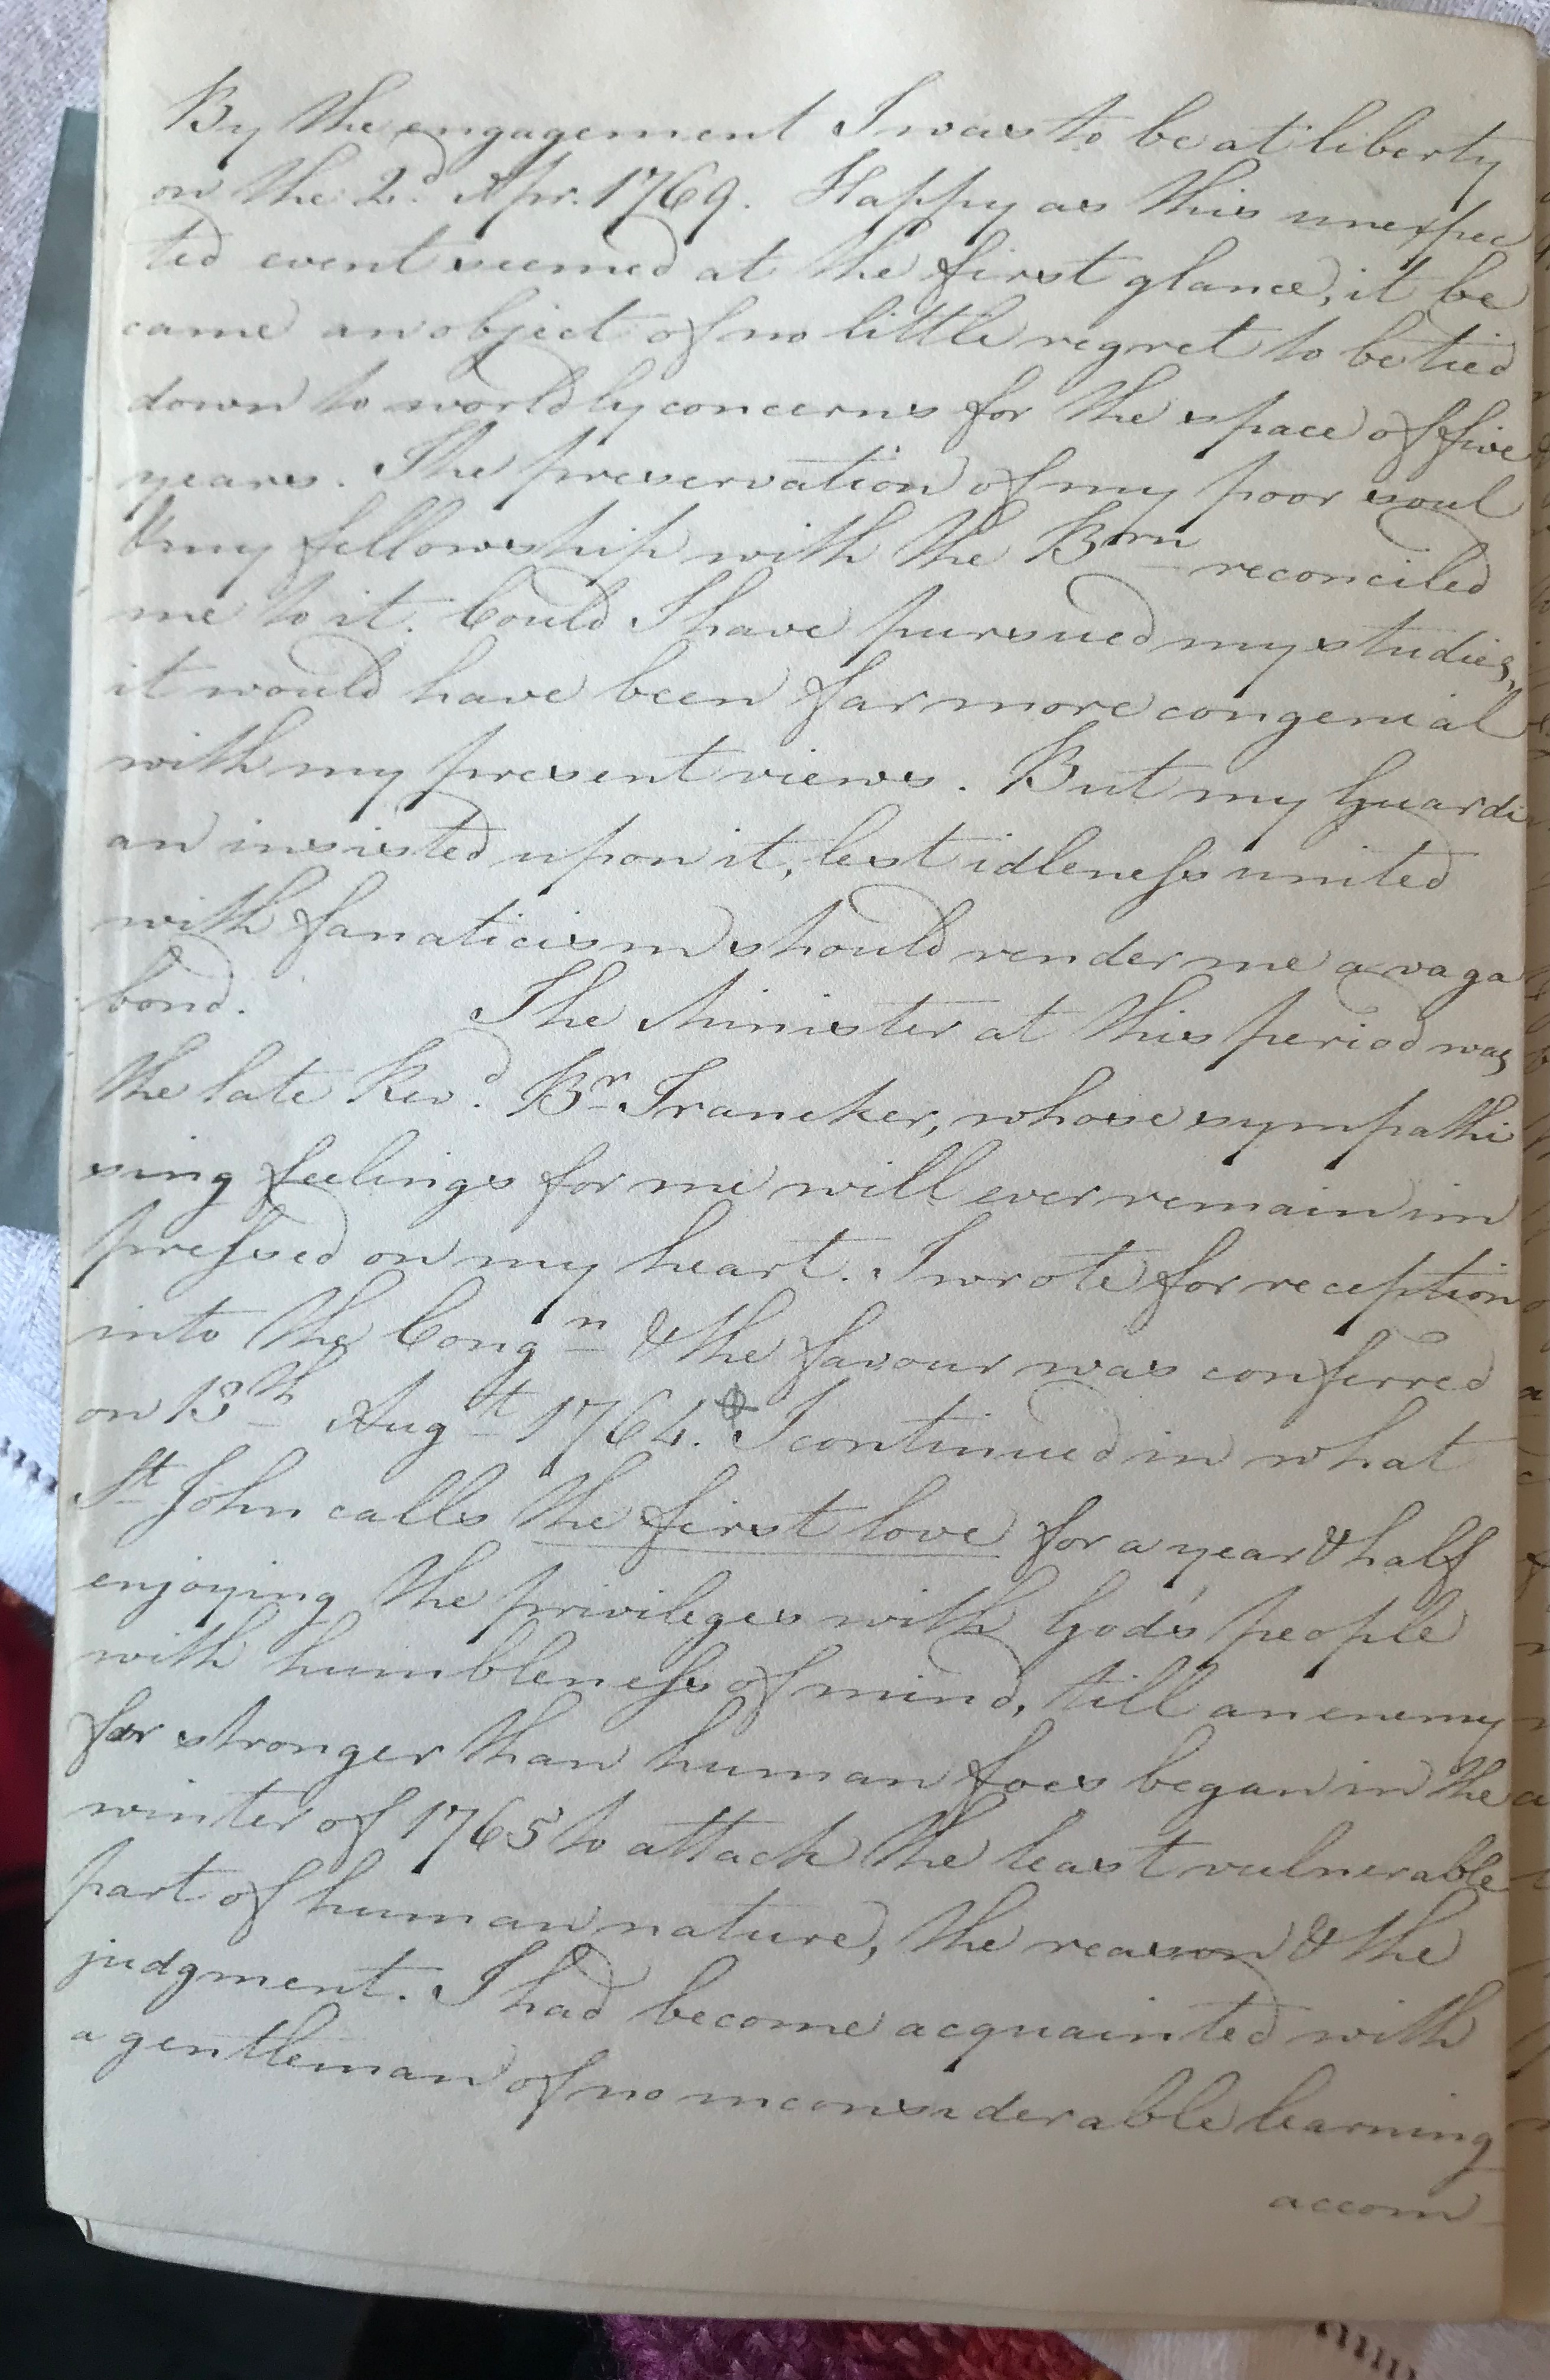 By the engagement I was to be at liberty
on the 2d. Apr. 1769. Happy as this unexpec
ted event seemed at the first glance, it be
came an object of no little regret to be tied
down to worldly concerns for the space of five
years. The preservation of my poor soul
& my fellowship with the Brn reconciled
me to it. Could I have pursued my studies,
it would have been far more congenial
with my present views. But my Guardi
an insisted upon it, lest idleness united
with fanaticism should render me a vaga
bond. The Minister at this period was
the late Revd. Br Traneker, whose sympathi
sing feelings for me will ever remain im
pressed on my heart. I wrote for reception
into the Congn & the favour was conferred
on 13th Augt 1764. I continued in what
St John calls the first love for a year & half
enjoying the privileges with God's people
with humbleness of mind, till an enemy
far stronger than human foes began in the
winter of 1765 to attack the least vulnerable
part of human nature, the reason & the
judgment. I had become acquainted with
a gentleman of no inconsiderable learning
accom-